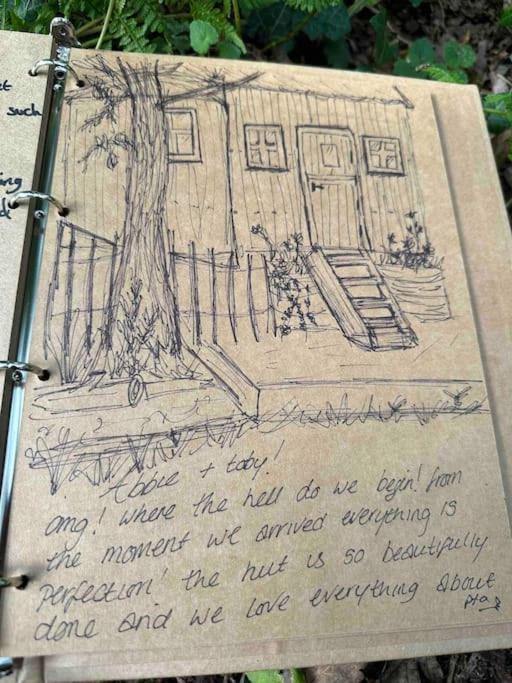 such
Abbie + toby!
omg! where the hell do we begin! from
the moment we arrived everything is
perfection! the hut is so beautifully
done and we love everything about
pto